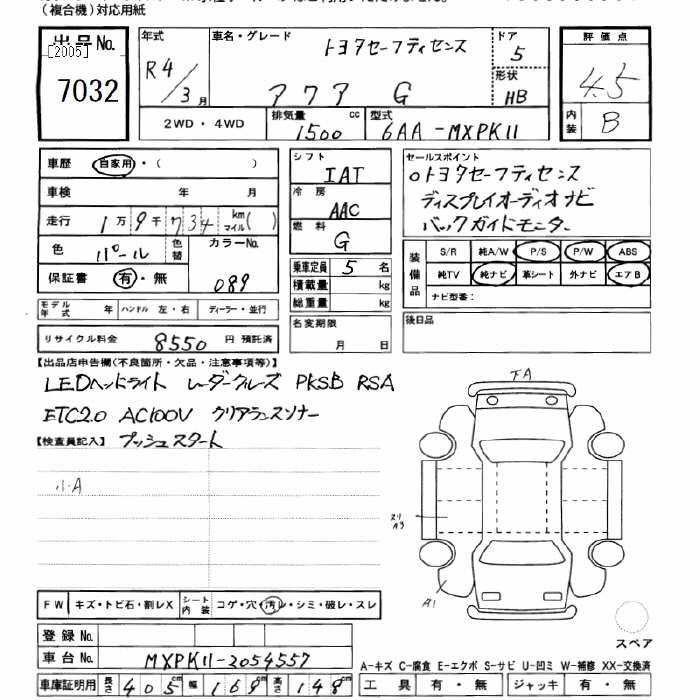 （複合機）対応用紙
出品No.
[2005]
7032
年式 R4/3月
車名・グレード トヨタセーフティセンス
アクア G
ドア 5
形状 HB
2WD・4WD
排気量 1500 cc
型式 6AA-MXPK11
評価点 4.5
内装 B
車歴 自家用・( )
車検 年 月
走行 1万9千734 km マイル( )
色 パール 色替 カラーNo. 089
保証書 有・無
モデル年式 年 ハンドル 左・右 ディーラー・並行
リサイクル料金 8550 円 預託済
シフト IAT
冷房 AAC
燃料 G
乗車定員 5 名
積載量 kg
総重量 kg
名変期限 月 日
セールスポイント
○トヨタセーフティセンス
ディスプレイオーディオナビ
バックガイドモニター
装備品 S/R 純A/W P/S P/W ABS
純TV 純ナビ 革シート 外ナビ エアB
ナビ型番：
後日品
【出品店申告欄(不良箇所・欠品・注意事項等)】
LEDヘッドライト レーダークルーズ PKSB RSA
ETC2.0 AC100V クリアランスソナー
【検査員記入】 プッシュスタート
小A
FA
スリ
A3
A1
スペア
FW キズ・トビ石・割レX シート内装 コゲ・穴・汚レ・シミ・破レ・スレ
登録No.
車台No. MXPK11-2054557
車庫証明用 長さ 405cm 幅 169cm 高さ 148cm
A－キズ C－腐食 E－エクボ S－サビ U－凹ミ W－補修 XX－交換済
工具 有・無 ジャッキ 有・無